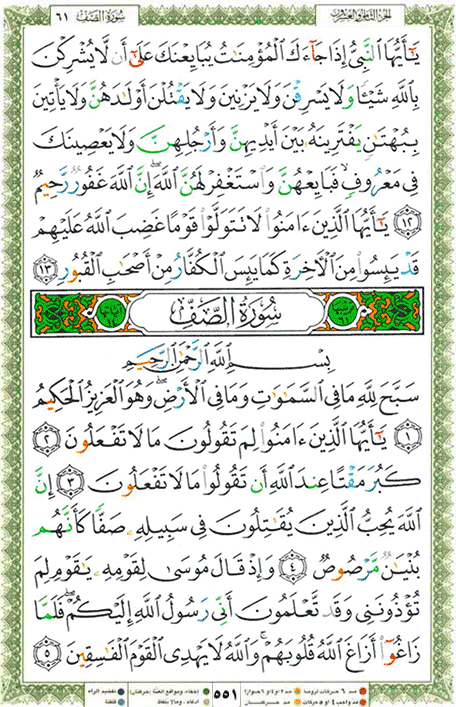 الجزء الثامن والعشرون سورة الصف ٦١
يَـٰٓأَيُّهَا ٱلنَّبِىُّ إِذَا جَآءَكَ ٱلْمُؤْمِنَـٰتُ يُبَايِعْنَكَ عَلَىٰٓ أَن لَّا يُشْرِكْنَ
بِٱللَّهِ شَيْـًٔا وَلَا يَسْرِقْنَ وَلَا يَزْنِينَ وَلَا يَقْتُلْنَ أَوْلَـٰدَهُنَّ وَلَا يَأْتِينَ
بِبُهْتَـٰنٍ يَفْتَرِينَهُۥ بَيْنَ أَيْدِيهِنَّ وَأَرْجُلِهِنَّ وَلَا يَعْصِينَكَ
فِى مَعْرُوفٍ فَبَايِعْهُنَّ وَٱسْتَغْفِرْ لَهُنَّ ٱللَّهَ ۖ إِنَّ ٱللَّهَ غَفُورٌ رَّحِيمٌ
١٢ يَـٰٓأَيُّهَا ٱلَّذِينَ ءَامَنُوا۟ لَا تَتَوَلَّوْا۟ قَوْمًا غَضِبَ ٱللَّهُ عَلَيْهِمْ
قَدْ يَئِسُوا۟ مِنَ ٱلْـَٔاخِرَةِ كَمَا يَئِسَ ٱلْكُفَّارُ مِنْ أَصْحَـٰبِ ٱلْقُبُورِ ١٣
سُورَةُ الصَّفِّ
بِسْمِ ٱللَّهِ ٱلرَّحْمَـٰنِ ٱلرَّحِيمِ
سَبَّحَ لِلَّهِ مَا فِى ٱلسَّمَـٰوَٰتِ وَمَا فِى ٱلْأَرْضِ ۖ وَهُوَ ٱلْعَزِيزُ ٱلْحَكِيمُ
١ يَـٰٓأَيُّهَا ٱلَّذِينَ ءَامَنُوا۟ لِمَ تَقُولُونَ مَا لَا تَفْعَلُونَ ٢
كَبُرَ مَقْتًا عِندَ ٱللَّهِ أَن تَقُولُوا۟ مَا لَا تَفْعَلُونَ ٣ إِنَّ
ٱللَّهَ يُحِبُّ ٱلَّذِينَ يُقَـٰتِلُونَ فِى سَبِيلِهِۦ صَفًّا كَأَنَّهُم
بُنْيَـٰنٌ مَّرْصُوصٌ ٤ وَإِذْ قَالَ مُوسَىٰ لِقَوْمِهِۦ يَـٰقَوْمِ لِمَ
تُؤْذُونَنِى وَقَد تَّعْلَمُونَ أَنِّى رَسُولُ ٱللَّهِ إِلَيْكُمْ ۖ فَلَمَّا
زَاغُوٓا۟ أَزَاغَ ٱللَّهُ قُلُوبَهُمْ ۚ وَٱللَّهُ لَا يَهْدِى ٱلْقَوْمَ ٱلْفَـٰسِقِينَ ٥
٥٥١